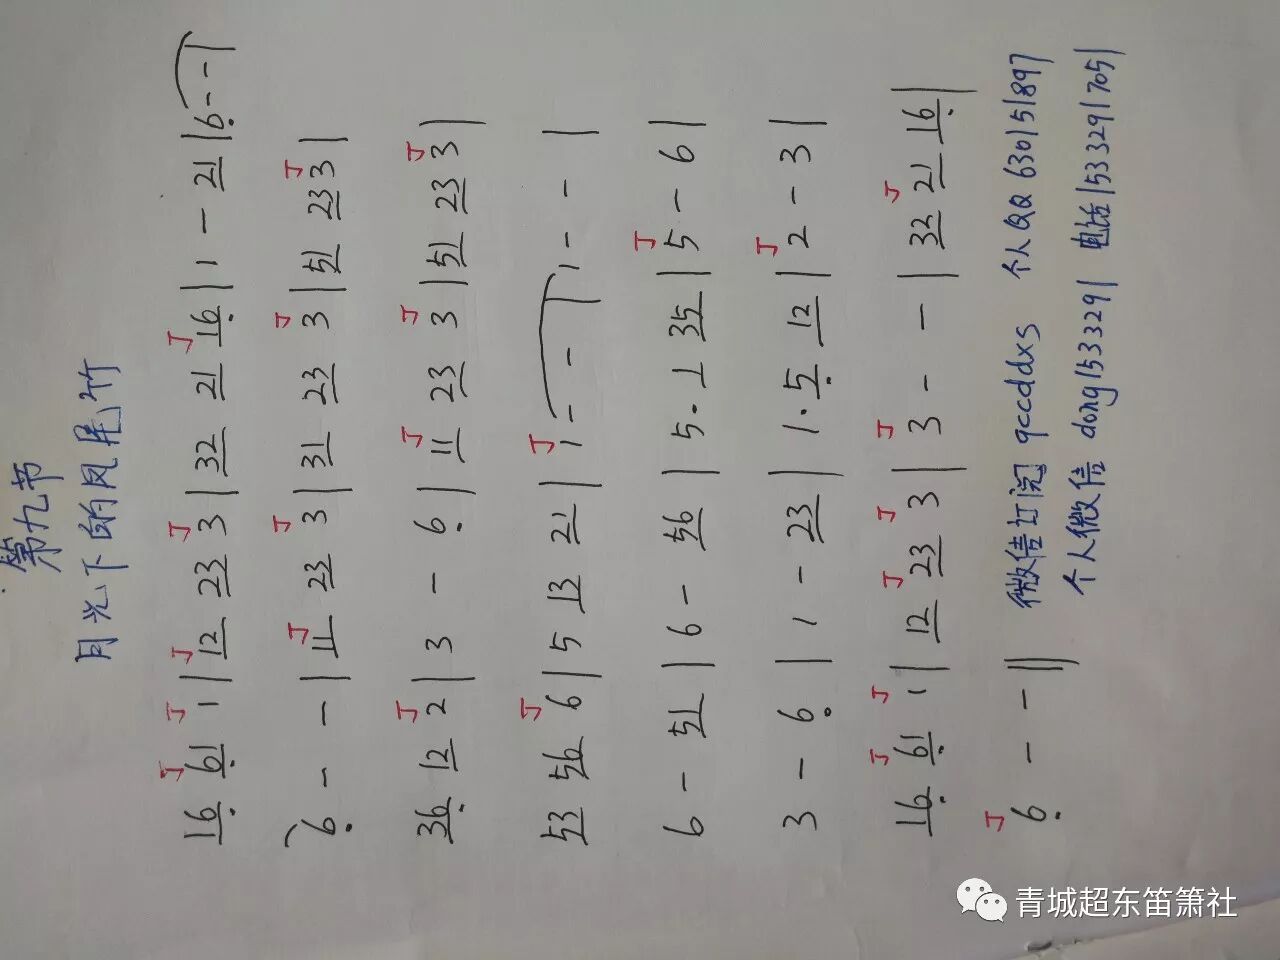 第九节
月光下的凤尾竹
J J J J J J
16 61 1 | 12 23 3 | 32 21 16 | 1 - 21 | 6 - - |
J J J J
6 - - | 11 23 3 | 31 23 3 | 51 23 3 |
J J J J
36 12 2 | 3 - 6 | 11 23 3 | 51 23 3 |
J J
53 56 6 | 5 13 21 | 1 - - | 1 - - |
J
6 - 51 | 6 - 56 | 5. 1 35 | 5 - 6 |
J
3 - 6 | 1 - 23 | 1. 5 12 | 2 - 3 |
J J J J J J
16 61 1 | 12 23 3 | 3 - - | 32 21 16 |
J
6 - - ||
微信订阅 qccddxs 个人QQ 630151897
个人微信 dong1533291 电话 15332917051
青城超东笛箫社